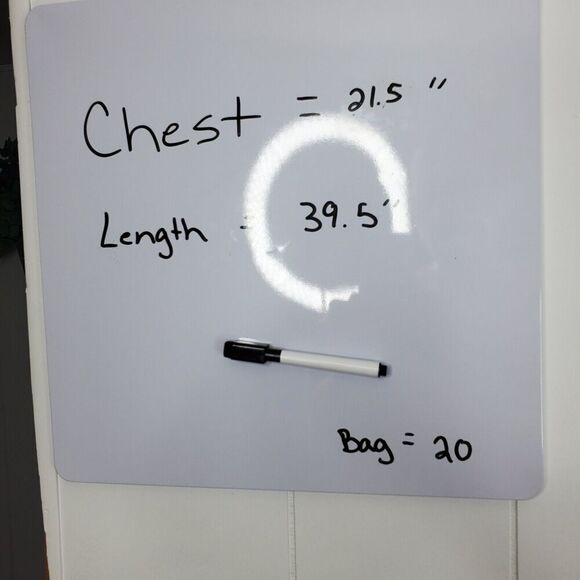 Chest = 21.5 "
Length = 39.5"
Bag = 20